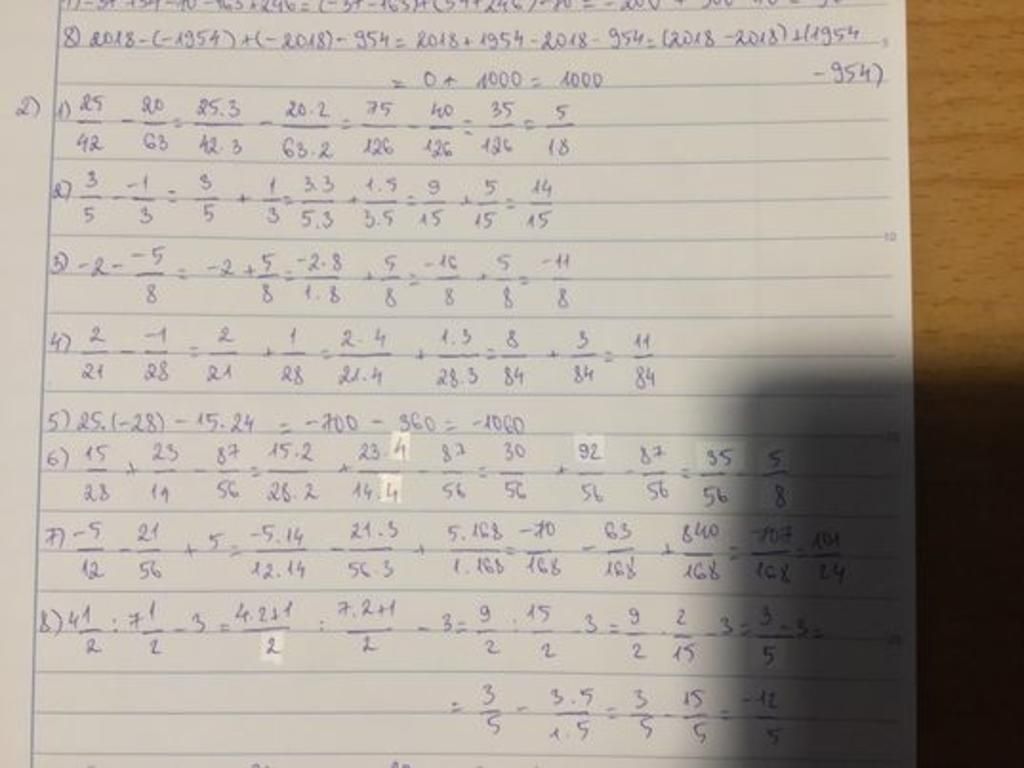 1) -37+54-70-163+246=(-37-163)+(54+246)-70=-200+300-70=
8) 2018-(-1954)+(-2018)-954=2018+1954-2018-954=(2018-2018)+(1954
= 0+ 1000= 1000 -954)
2) 1) 25/42 - 20/63 = 25.3/42.3 - 20.2/63.2 = 75/126 - 40/126 = 35/126 = 5/18
2) 3/5 - -1/3 = 3/5 + 1/3 = 3.3/5.3 + 1.5/3.5 = 9/15 + 5/15 = 14/15
3) -2 - -5/8 = -2 + 5/8 = -2.8/1.8 + 5/8 = -16/8 + 5/8 = -11/8
4) 2/21 - -1/28 = 2/21 + 1/28 = 2.4/21.4 + 1.3/28.3 = 8/84 + 3/84 = 11/84
5) 25.(-28) - 15.24 = -700 - 360 = -1060
6) 15/28 + 23/14 - 87/56 = 15.2/28.2 + 23.4/14.4 - 87/56 = 30/56 + 92/56 - 87/56 = 35/56 = 5/8
7) -5/12 - 21/56 + 5 = -5.14/12.14 - 21.3/56.3 + 5.168/1.168 = -70/168 - 63/168 + 840/168 = -707/168 = 101/24
8) 4 1/2 : 7 1/2 - 3 = 4.2+1/2 : 7.2+1/2 - 3 = 9/2 : 15/2 - 3 = 9/2 . 2/15 - 3 = 3/5 - 3 =
= 3/5 - 3.5/1.5 = 3/5 - 15/5 = -12/5